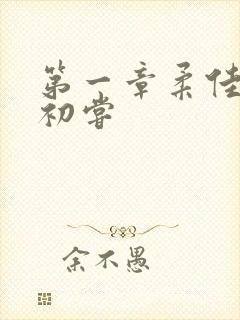 第一章柔佳
初尝
余不愚